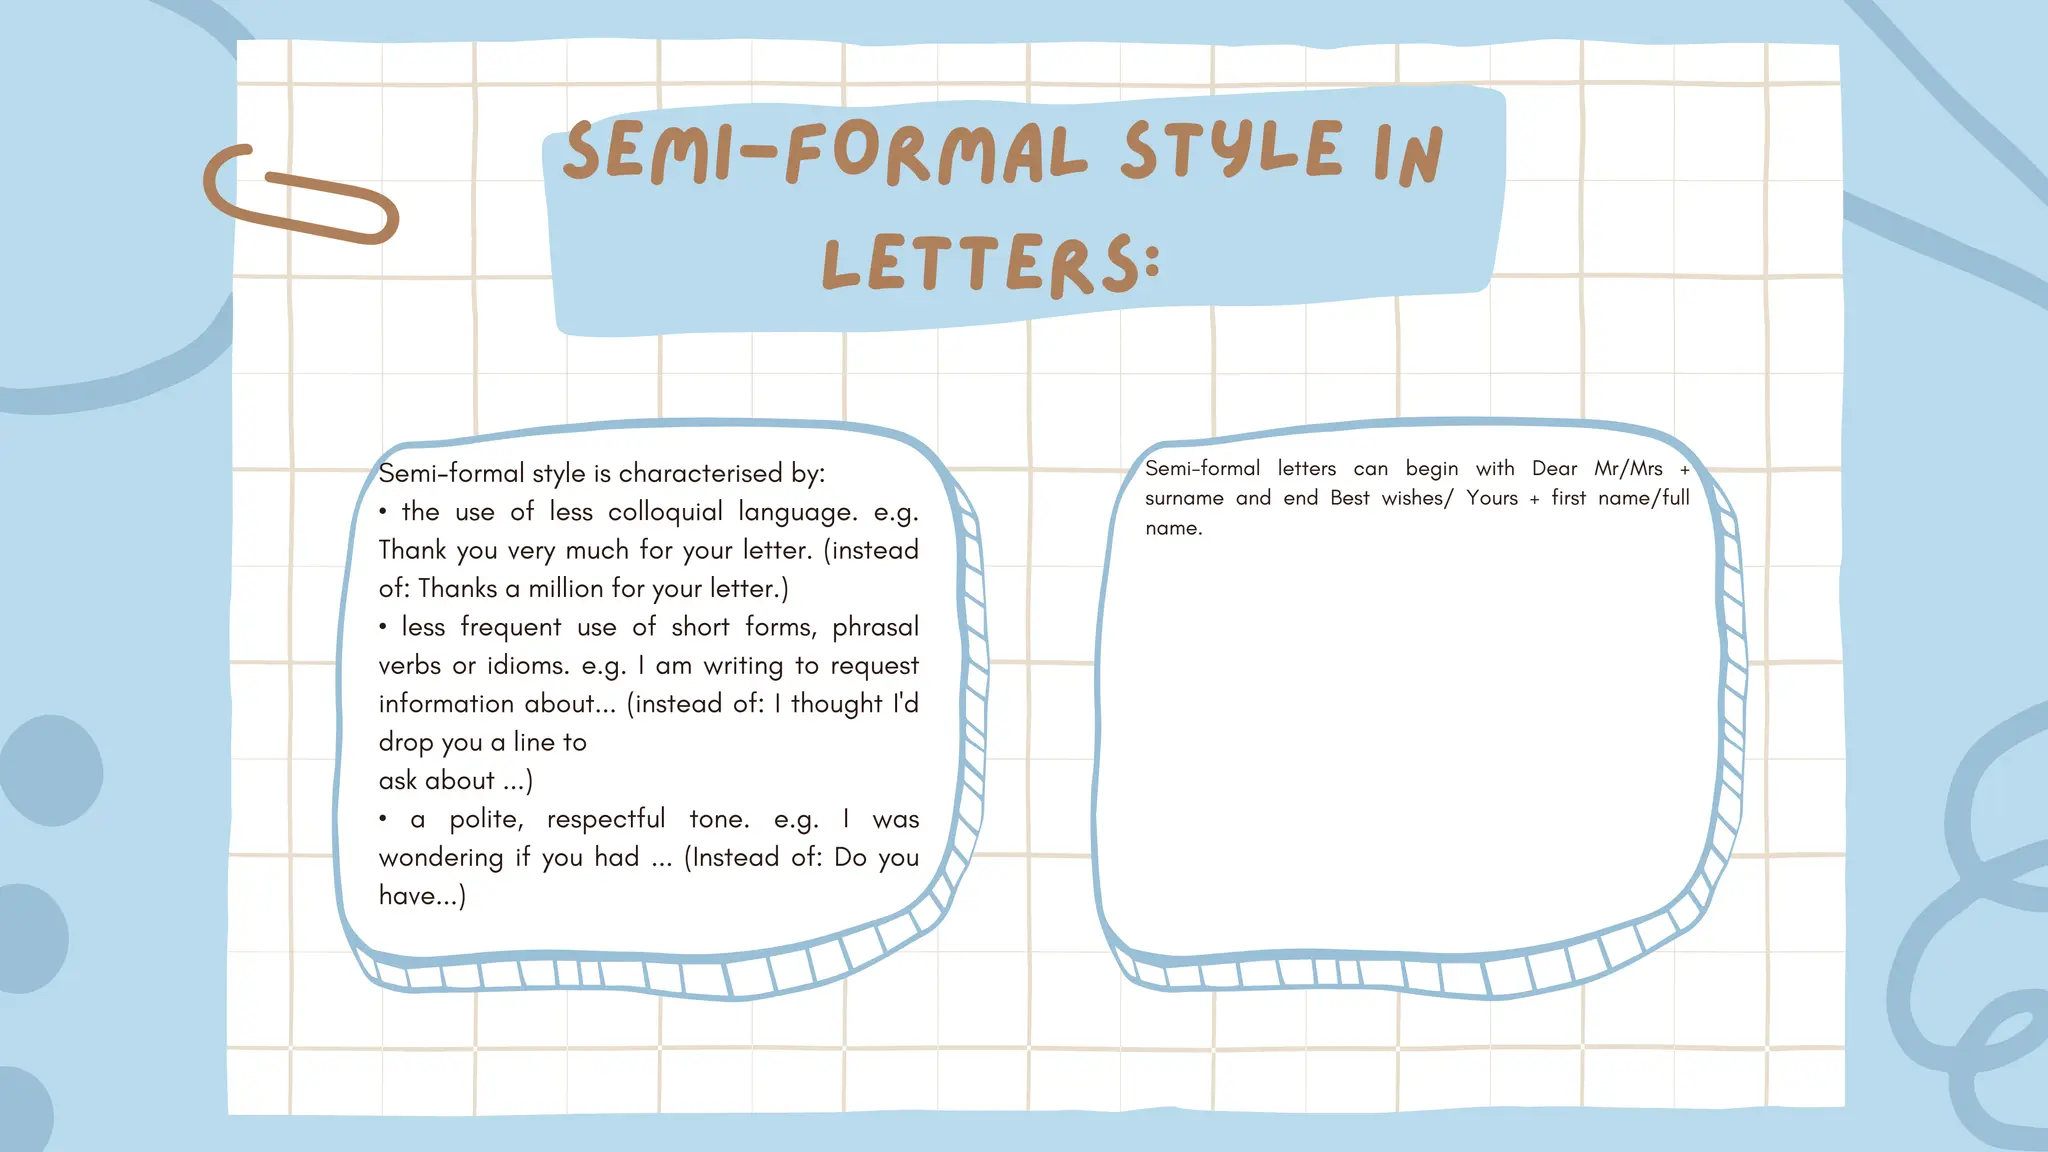 SEMI-FORMAL STYLE IN
LETTERS:
Semi-formal style is characterised by:
• the use of less colloquial language. e.g.
Thank you very much for your letter. (instead
of: Thanks a million for your letter.)
• less frequent use of short forms, phrasal
verbs or idioms. e.g. I am writing to request
information about... (instead of: I thought I'd
drop you a line to
ask about ...)
• a polite, respectful tone. e.g. I was
wondering if you had ... (Instead of: Do you
have...)
Semi-formal letters can begin with Dear Mr/Mrs +
surname and end Best wishes/ Yours + first name/full
name.